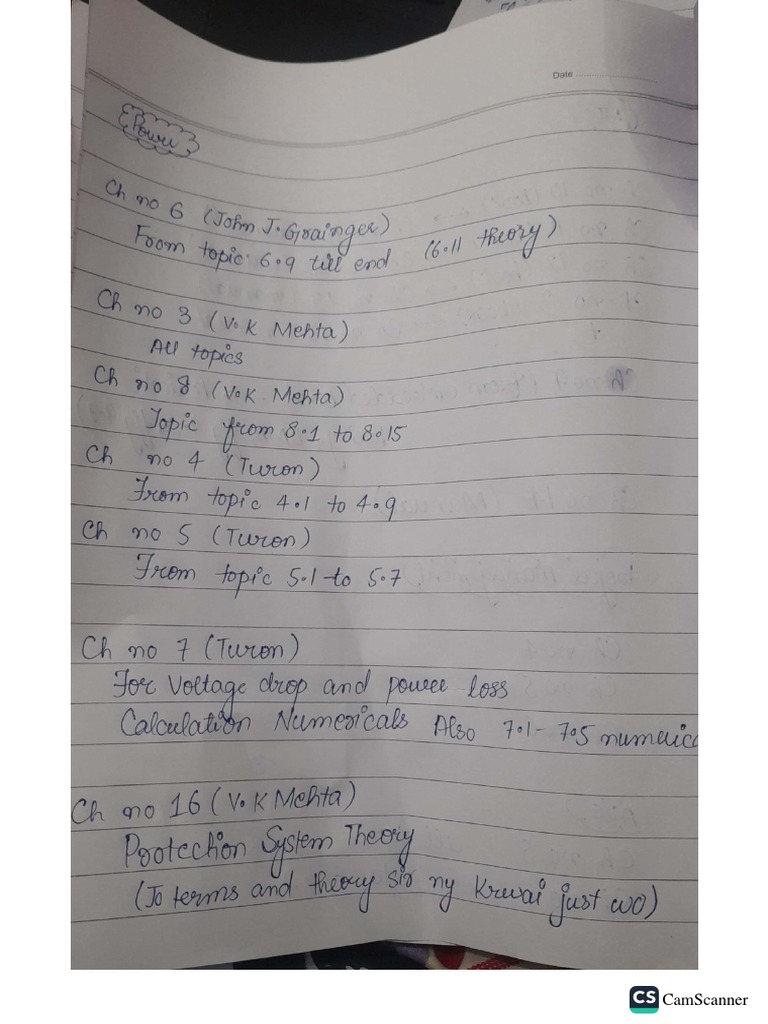 Date
Power
Ch no 6 (John J. Grainger)
From topic 6.9 till end (6.11 theory)
Ch no 3 (V.K Mehta)
All topics
Ch no 8 (V.K Mehta)
Topic from 8.1 to 8.15
Ch no 4 (Turon)
From topic 4.1 to 4.9
Ch no 5 (Turon)
From topic 5.1 to 5.7
Ch no 7 (Turon)
For Voltage drop and power loss
Calculation Numericals Also 7.1 - 7.5 numeric
Ch no 16 (V.K Mehta)
Protection System Theory
(Jo terms and theory sir ny Krwai just wo)
CS CamScanner